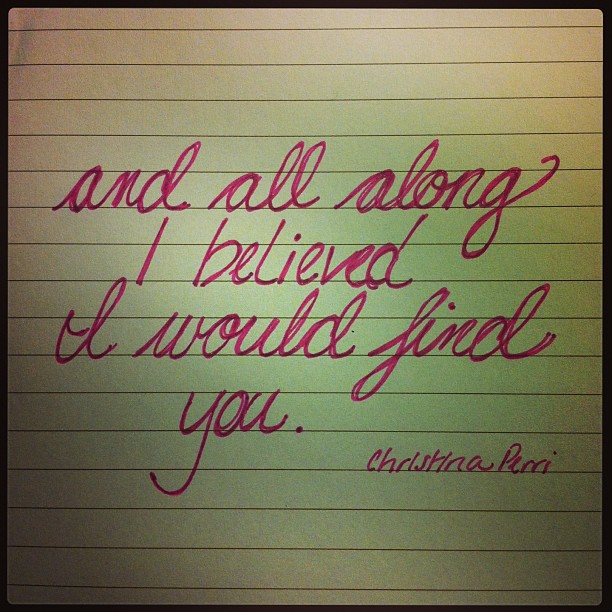 and all along
I believed
I would find
you.
Christina Perri